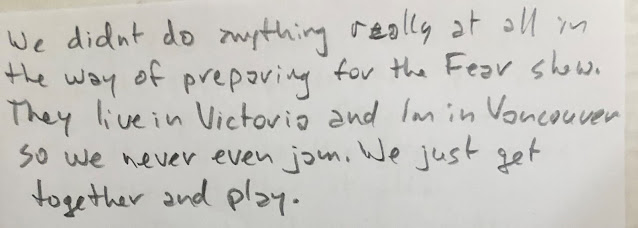 We didnt do anything really at all in
the way of preparing for the Fear show.
They live in Victoria and Im in Vancouver
so we never even jam. We just get
together and play.